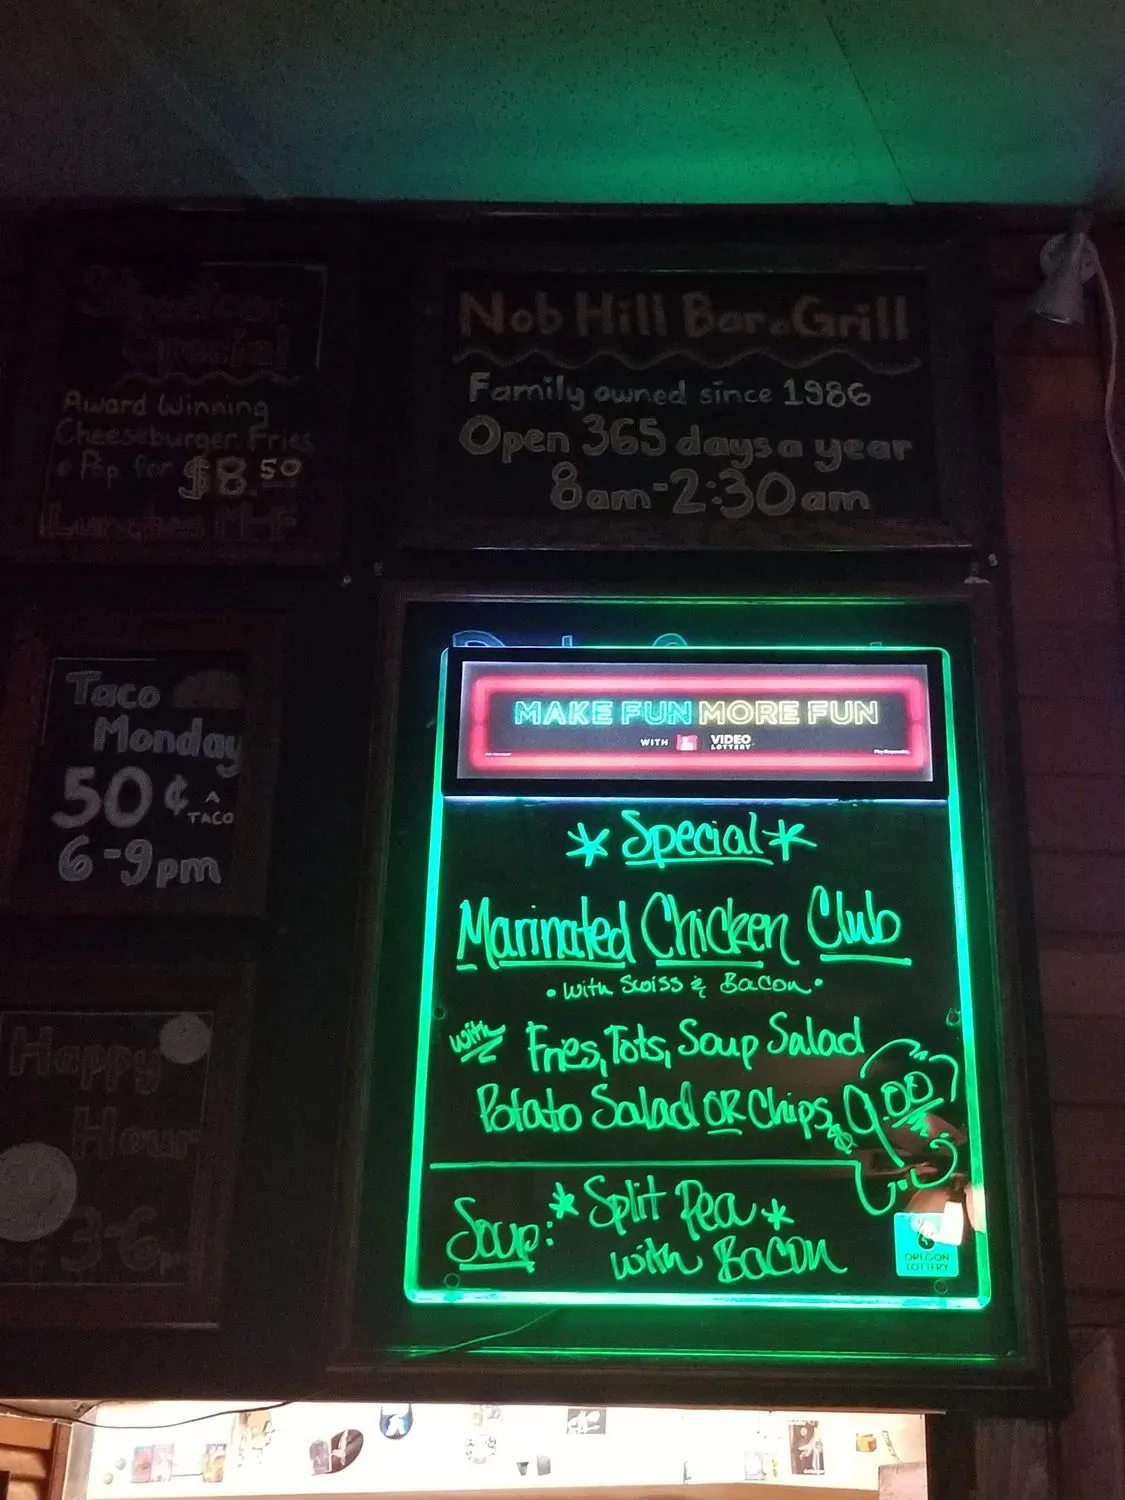 Streetcar
Special
Award Winning
Cheeseburger, Fries
& Pop for $8.50
Lunches M-F
Nob Hill Bar & Grill
Family owned since 1986
Open 365 days a year
8am-2:30am
Taco
Monday
50¢ A TACO
6-9pm
Happy
Hour
3-6pm
MAKE FUN MORE FUN
WITH VIDEO LOTTERY
* Special *
Marinated Chicken Club
• with Swiss & Bacon •
with Fries, Tots, Soup Salad
Potato Salad OR Chips 9.00
Soup: * Split Pea *
with Bacon
OREGON
LOTTERY